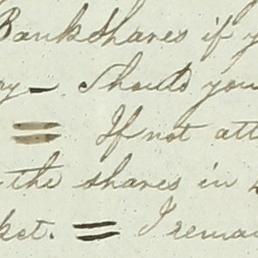 Bank Shares if y
ay — Should you
= If not att
the shares in
ket. = I remai